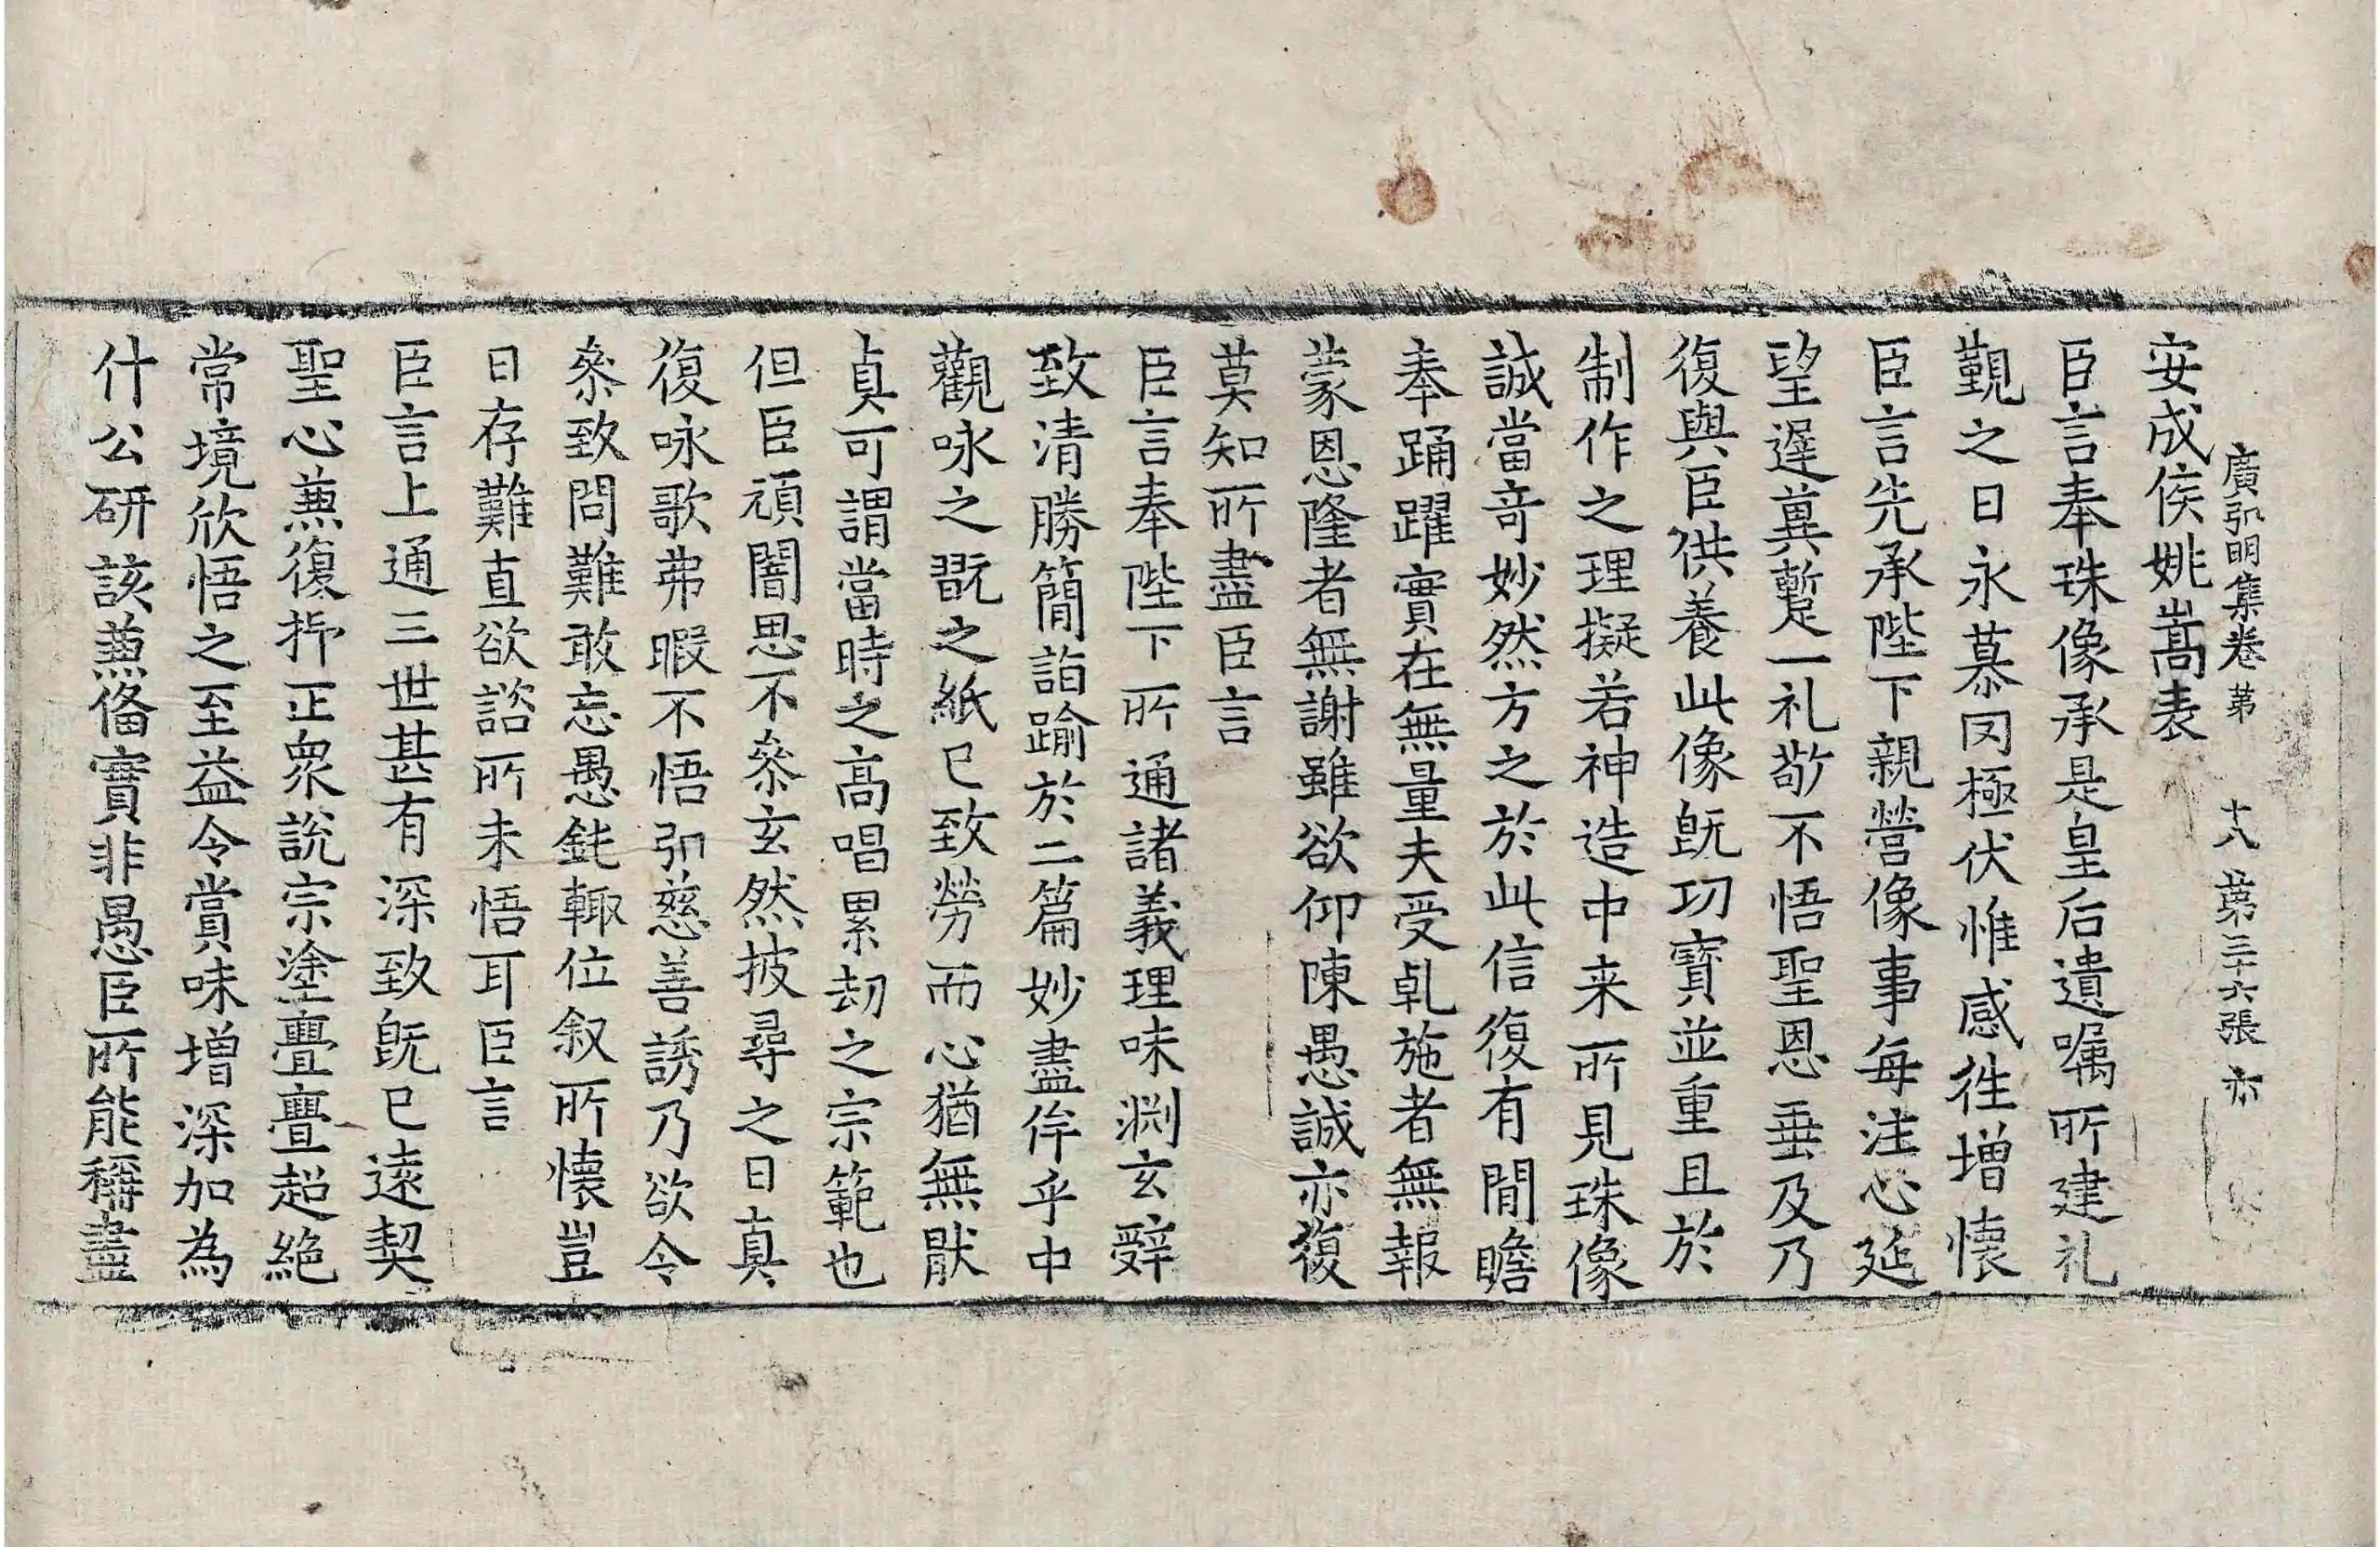 廣弘明集卷第十八 第三十六張 亦
安成侯姚嵩表
臣言奉珠像承是皇后遺嘱所建礼
覲之日永慕罔極伏惟感徃增懷
臣言先承陛下親營像事每注心延
望遅冀蹔一礼敬不悟聖恩垂及乃
復與臣供養此像既功寶並重且於
制作之理擬若神造中来所見珠像
誠當竒妙然方之於此信復有閒瞻
奉踊躍實在無量夫受乹施者無報
蒙恩隆者無謝雖欲仰陳愚誠亦復
莫知所盡臣言
臣言奉陛下所通諸義理味渊玄辝
致清勝簡詣踰於二篇妙盡侔乎中
觀咏之翫之紙已致勞而心猶無猒
真可謂當時之高唱累劫之宗範也
但臣頑闇思不叅玄然披尋之日真
復咏歌弗暇不悟弘慈善誘乃欲令
叅致問難敢忘愚鈍輙位叙所懷豈
日存難直欲諮所未悟耳臣言
臣言上通三世甚有深致既已遠契
聖心兼復抑正衆說宗塗亹亹超絶
常境欣悟之至益令賞味增深加為
什公研該兼俻實非愚臣所能稱盡